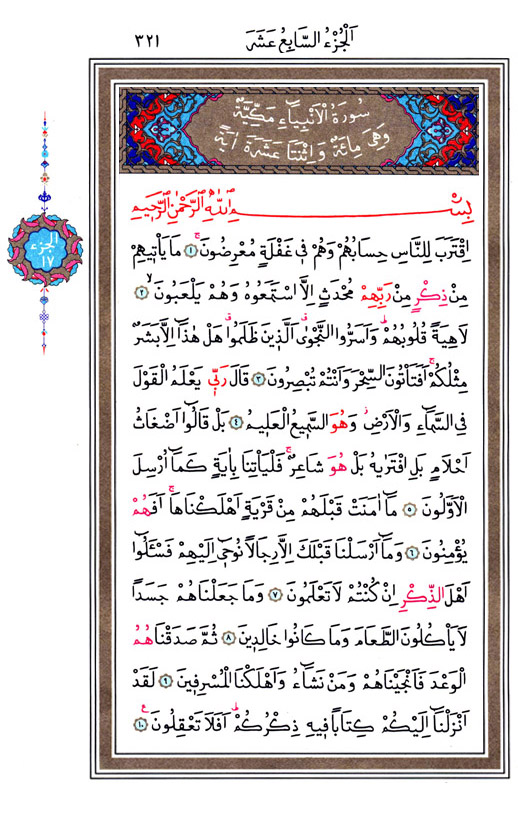 اَلْجُزْءُ السَّابِعُ عَشَرَ
٣٢١
سُورَةُ الْاَنْبِيَاءِ مَكِّيَّةٌ
وَهِيَ مِائَةٌ وَاِثْنَتَا عَشْرَةَ اٰيَةً
الجزء
١٧
بِسْمِ اللّٰهِ الرَّحْمٰنِ الرَّحِيمِ
اِقْتَرَبَ لِلنَّاسِ حِسَابُهُمْ وَهُمْ فِى غَفْلَةٍ مُعْرِضُونَۚ ١ مَا يَأْتِيهِمْ
مِنْ ذِكْرٍ مِنْ رَبِّهِمْ مُحْدَثٍ اِلَّا اسْتَمَعُوهُ وَهُمْ يَلْعَبُونَۙ ٢
لَاهِيَةً قُلُوبُهُمْۜ وَاَسَرُّوا النَّجْوٰىۗ اَلَّذِينَ ظَلَمُواۗ هَلْ هٰذَٓا اِلَّا بَشَرٌ
مِثْلُكُمْۚ اَفَتَأْتُونَ السِّحْرَ وَاَنْتُمْ تُبْصِرُونَ ٣ قَالَ رَبِّى يَعْلَمُ الْقَوْلَ
فِى السَّمَٓاءِ وَالْاَرْضِۘ وَهُوَ السَّمِيعُ الْعَلِيمُ ٤ بَلْ قَالُٓوا اَضْغَاثُ
اَحْلَامٍ بَلِ افْتَرٰيهُ بَلْ هُوَ شَاعِرٌۚ فَلْيَأْتِنَا بِاٰيَةٍ كَمَٓا اُرْسِلَ
الْاَوَّلُونَ ٥ مَٓا اٰمَنَتْ قَبْلَهُمْ مِنْ قَرْيَةٍ اَهْلَكْنَاهَاۚ اَفَهُمْ
يُؤْمِنُونَ ٦ وَمَٓا اَرْسَلْنَا قَبْلَكَ اِلَّا رِجَالًا نُوحِٓى اِلَيْهِمْ فَسْـَٔلُٓوا
اَهْلَ الذِّكْرِ اِنْ كُنْتُمْ لَا تَعْلَمُونَ ٧ وَمَا جَعَلْنَاهُمْ جَسَدًا
لَا يَأْكُلُونَ الطَّعَامَ وَمَا كَانُوا خَالِدِينَ ٨ ثُمَّ صَدَقْنَاهُمُ
الْوَعْدَ فَاَنْجَيْنَاهُمْ وَمَنْ نَشَٓاءُ وَاَهْلَكْنَا الْمُسْرِفِينَ ٩ لَقَدْ
اَنْزَلْنَٓا اِلَيْكُمْ كِتَابًا فِيهِ ذِكْرُكُمْۜ اَفَلَا تَعْقِلُونَ ١٠